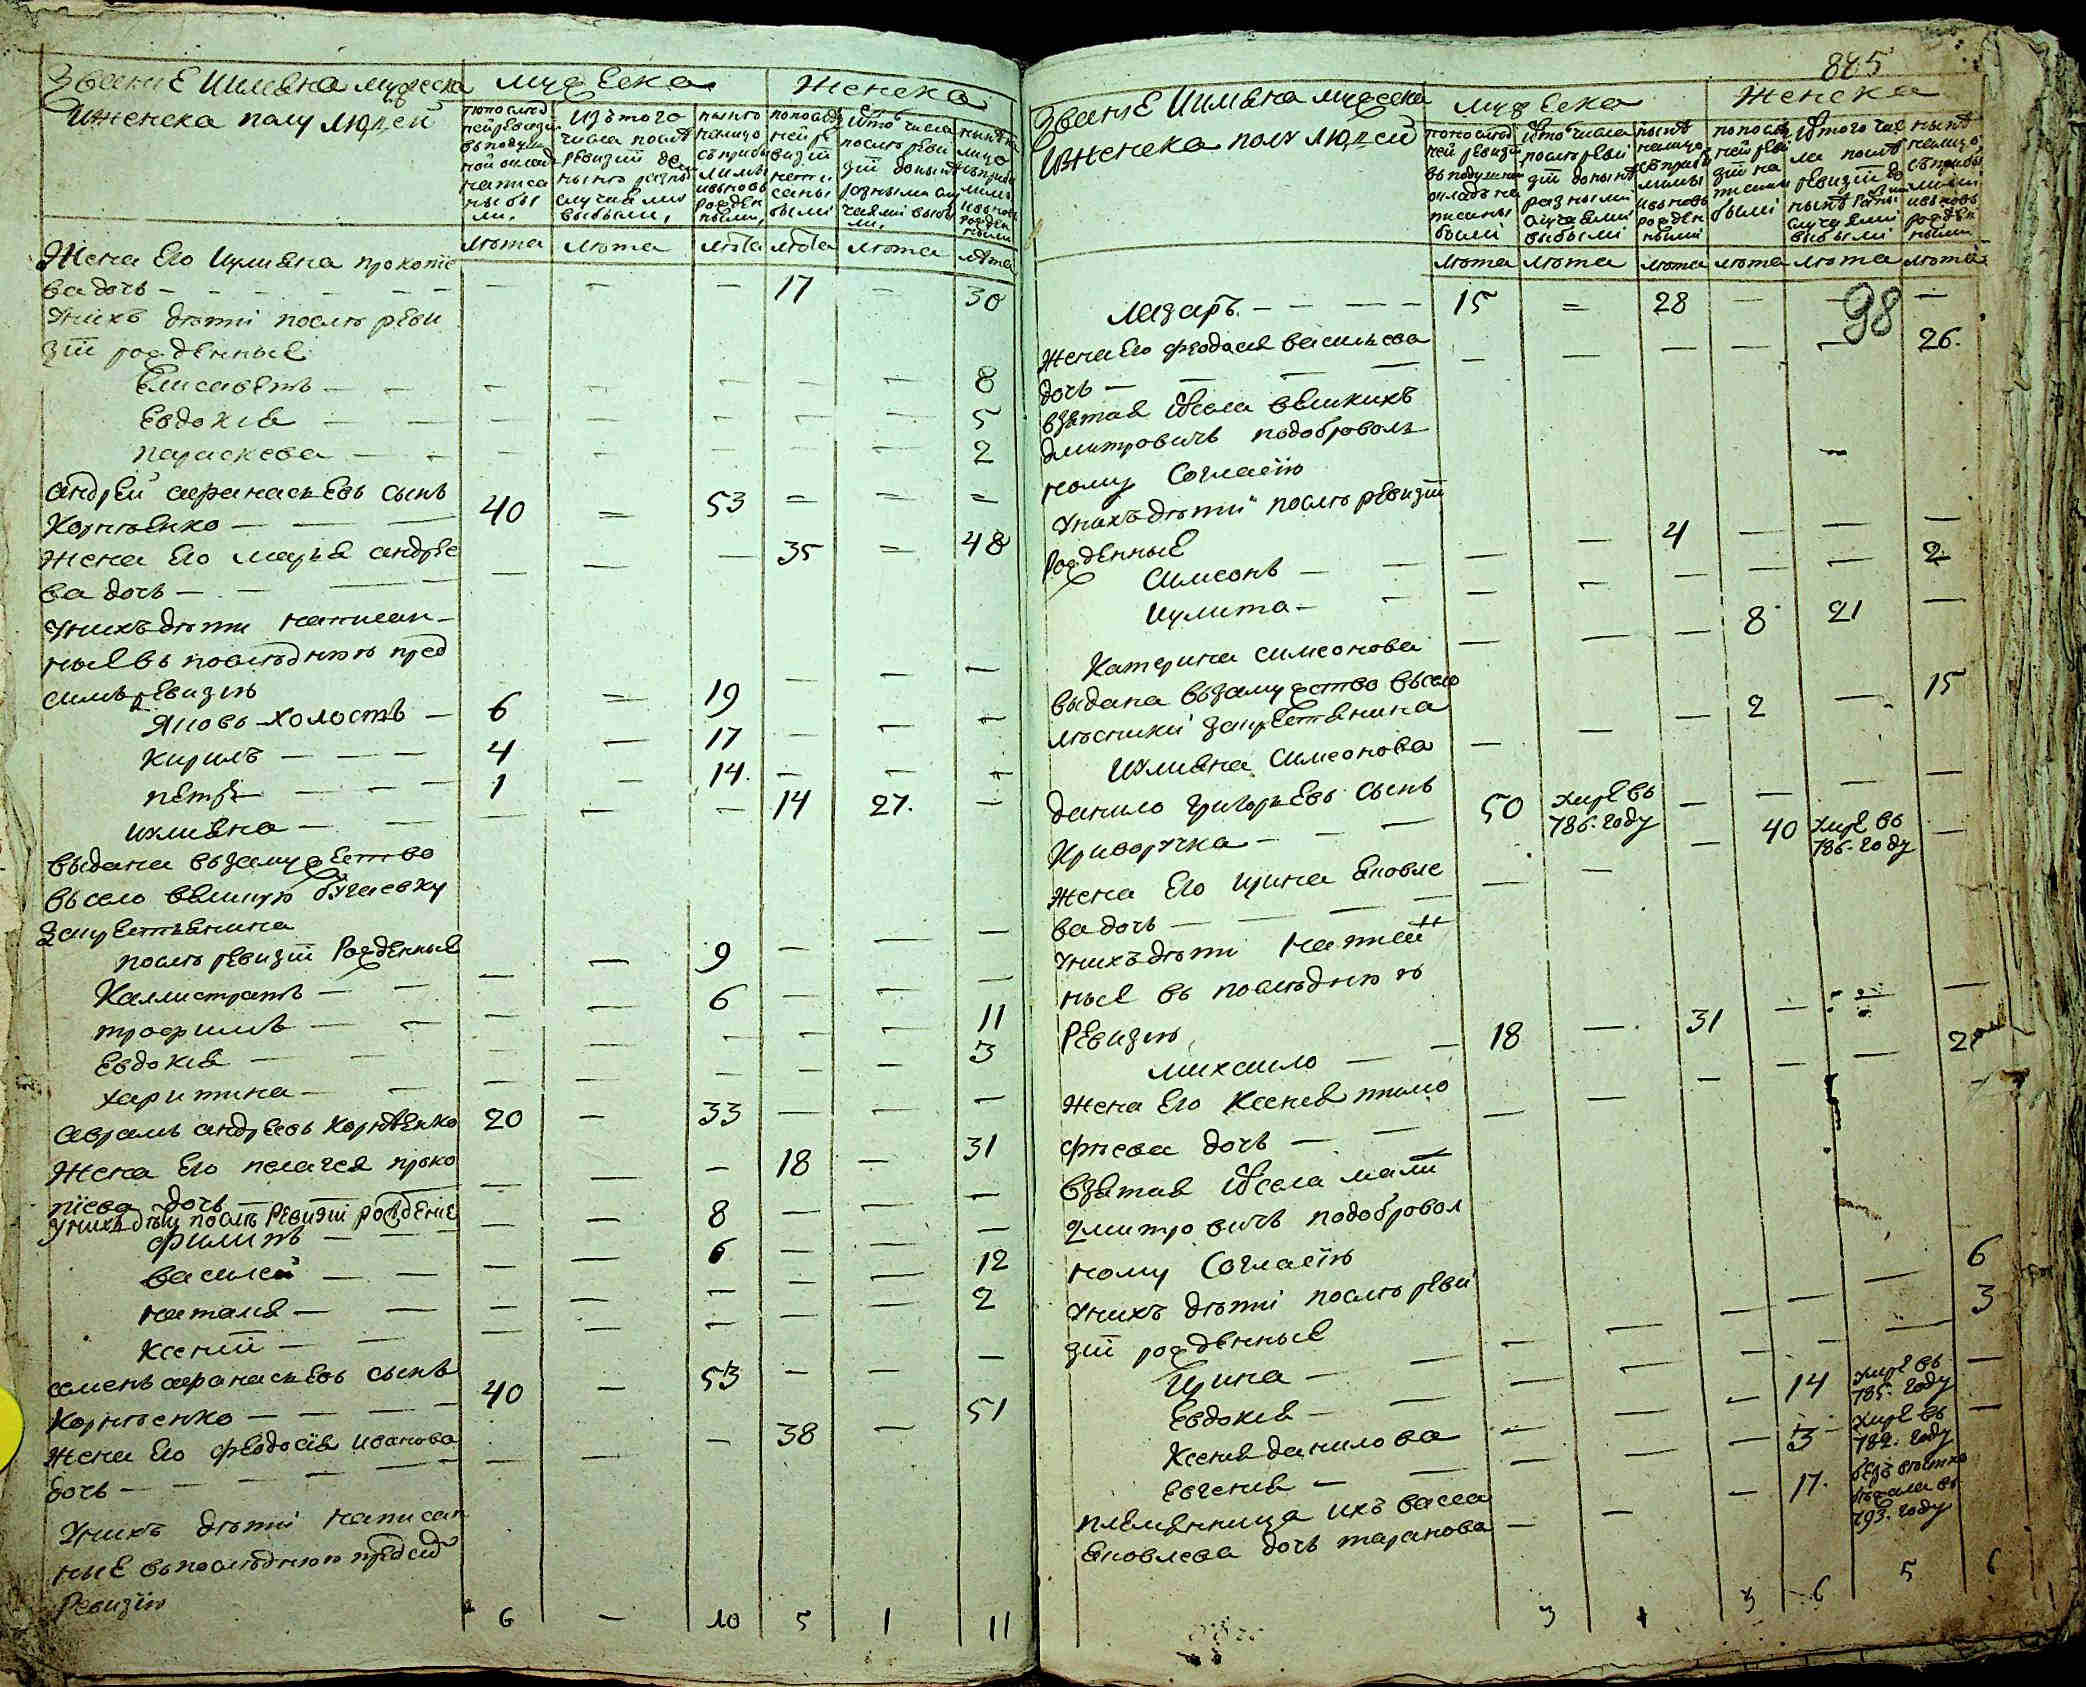 Званïе Иимяна мужеска
Иженска полу людей
мужеска
женска
попослед
ней ревизïи
въ подуш
ной оклад
написа
ны бы
ли,
Изътого
числа послѣ
ревизïи до
нынѣ разны
случаями
выбыли,
нынѣ
налицо
съприбы
лыми
ивновь
рожден
ными,
попослѣд
ней ре
визïи
напи
саны
были
Изтого числа
послѣ реви
зïи донынѣ
разными слу
чаями выбы
ли,
нынѣ на
лицо
съприбы
лыми
ивновь
рожден
ными
лѣта лѣта лѣта лѣта лѣта лѣта
Жена Его Иулияна прокопïе
ва дочь — — — — — 17 — 30
Унихъ дѣти послѣ реви
зïи рожденные
Елисаветъ — — — — — — 8
Евдокïя — — — — — — 5
параскева — — — — — — 2
андрей афанасьевъ сынъ
Корнѣенко — — 40 = 53 = = =
Жена Его марья андрее
ва дочь — — — — 35 = 48
Унихъ дѣти написан-
ные въ послѣднюю пред
симъ ревизïю
Яковъ холостъ — 6 = 19 — — —
Кирилъ — — — 4 — 17 — — —
петръ — — — 1 — 14. — — —
Иулияна — — — — — 14 27. —
выдана възамужество
въсело великую бугаевку
закрестьянина
послѣ ревизïи Рожденные
Каллистратъ — — — — 9 — — —
трофимъ — — — — 6 — — —
Евдокïя — — — — — — 11
харитина — — — — — — 3
аврамъ андреевъ Корнѣенко 20 — 33 — — —
Жена Его пелагея проко
пïева дочь — — — — 18 — 31
Унихъ дѣти послѣ Ревизïи рожденïе
филипъ — — — — 8 — — —
василей — — — — 6 — — —
наталя — — — — — — 12
Ксенïи — — — — — — 2
семенъ афанасьевъ сынъ
Корнѣенко — — — 40 — 53 — — —
Жена Его феодосïя иванова
дочь — — — — — — 38 — 51
Унихъ дѣти написан
ные въпослѣднюю предсид
Ревизïю
6 — 10 5 1 11
885
98
Званïе Иимяна мужеска
Иженска полу людей
мужеска
женска
попослед
ней ревизïи
въ подушной
окладъ на
писаны
были
Изтого числа
послѣ реви
зïи донынѣ
разными
случаями
выбыли
нынѣ
налицо
съприбы
лыми
ивновь
рожден
ными
попослѣд
ней реви
зïи на
писаны
были
Изтого чис
ла послѣ
ревизïи до
нынѣ разны
случаями
выбыли
нынѣ
налицо
съприбы
лыми
ивновь
рожден
ными
лѣта лѣта лѣта лѣта лѣта лѣта
Лазарь — — — — 15 = 28 — — —
Жена Его феодосïя васильева
дочь — — — — — — — — 26.
взятая Изсела великихъ
дмитровичъ подоброволь
ному Согласïю
Унихъ дѣти послѣ ревизïи
рожденные
Симеонъ — — — — 4 — — —
Иулита — — — — — — — 2
Катерина симеонова — — — 8 21 —
выдана възамужество въсело
лѣсники закрестьянина
Иулияна симеонова — — — 2 — 15
данило григорьевъ сынъ
Криворучка — — — 50 умре въ — — — —
786. году
Жена Его ирина яковле
ва дочь — — — — — — 40 умре въ —
786. году
Унихъ дѣти написан
ные въ послѣднюю
Ревизïю
михаило — — 18 — 31 — — —
Жена Его Ксенïя тимо
фѣева дочь — — — — — — —
взятая Изсела малы
дмитровичъ подоброволь
ному Согласïю
Унихъ дѣти послѣ реви
зïи рожденные
Ирина — — — — — — 6
Евдокïя — — — — — — 3
Ксенïя данилова — — — 14 умре въ —
785. году
Евгенïя — — — — 3 умре въ —
782. году
племянница ихъ васса
яковлева дочь таранова — — — 17. безъ вѣстно
бѣжала въ
793. году
3 1 3 6 5 6